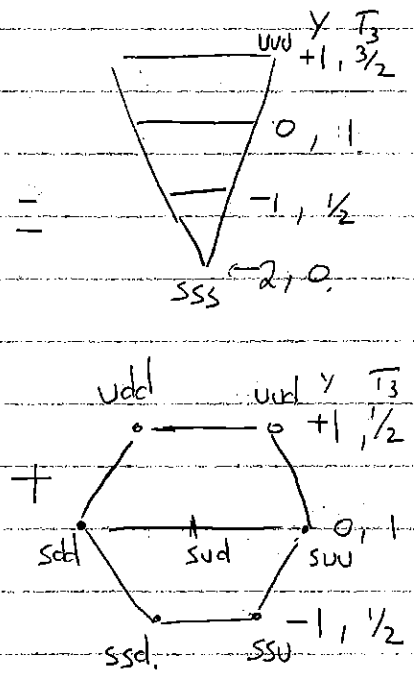 Y T₃
uuu +1, 3/2
0, 1
=
-1, 1/2
sss -2, 0
udd uud Y T₃
+1, 1/2
+
0, 1
sdd sud suu
-1, 1/2
ssd. ssu